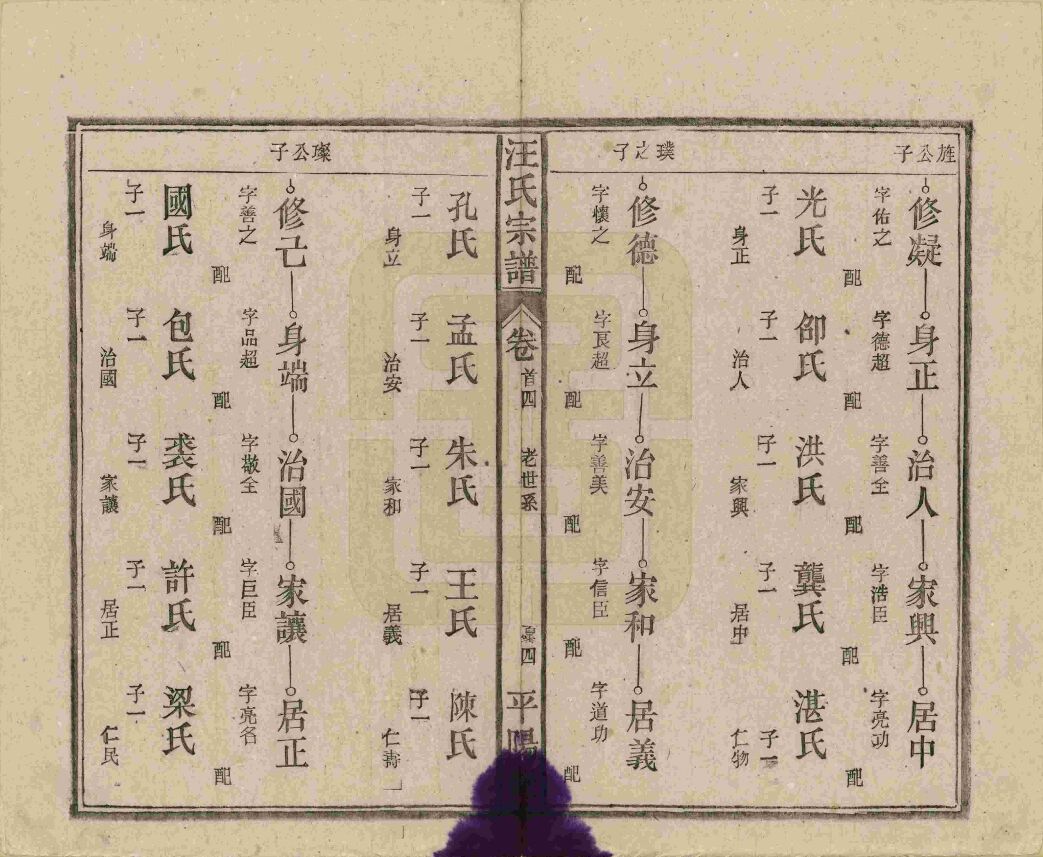 旌公子
修凝 身正 治人 家興 居中
字佑之 字德超 字善全 字浩臣 字亮功
配 配 配 配 配
光氏 卲氏 洪氏 龔氏 湛氏
子一 子一 子一 子一 子一
身正 治人 家興 居中 仁物
璞之子
修德 身立 治安 家和 居義
字懷之 字良超 字善美 字信臣 字道功
配 配 配 配 配
汪氏宗譜 卷首四 老世系 四 平陽
孔氏 孟氏 朱氏 王氏 陳氏
子一 子一 子一 子一 子一
身立 治安 家和 居義 仁壽
璨公子
修己 身端 治國 家讓 居正
字善之 字品超 字敬全 字巨臣 字亮名
配 配 配 配 配
國氏 包氏 裘氏 許氏 梁氏
子一 子一 子一 子一 子一
身端 治國 家讓 居正 仁民